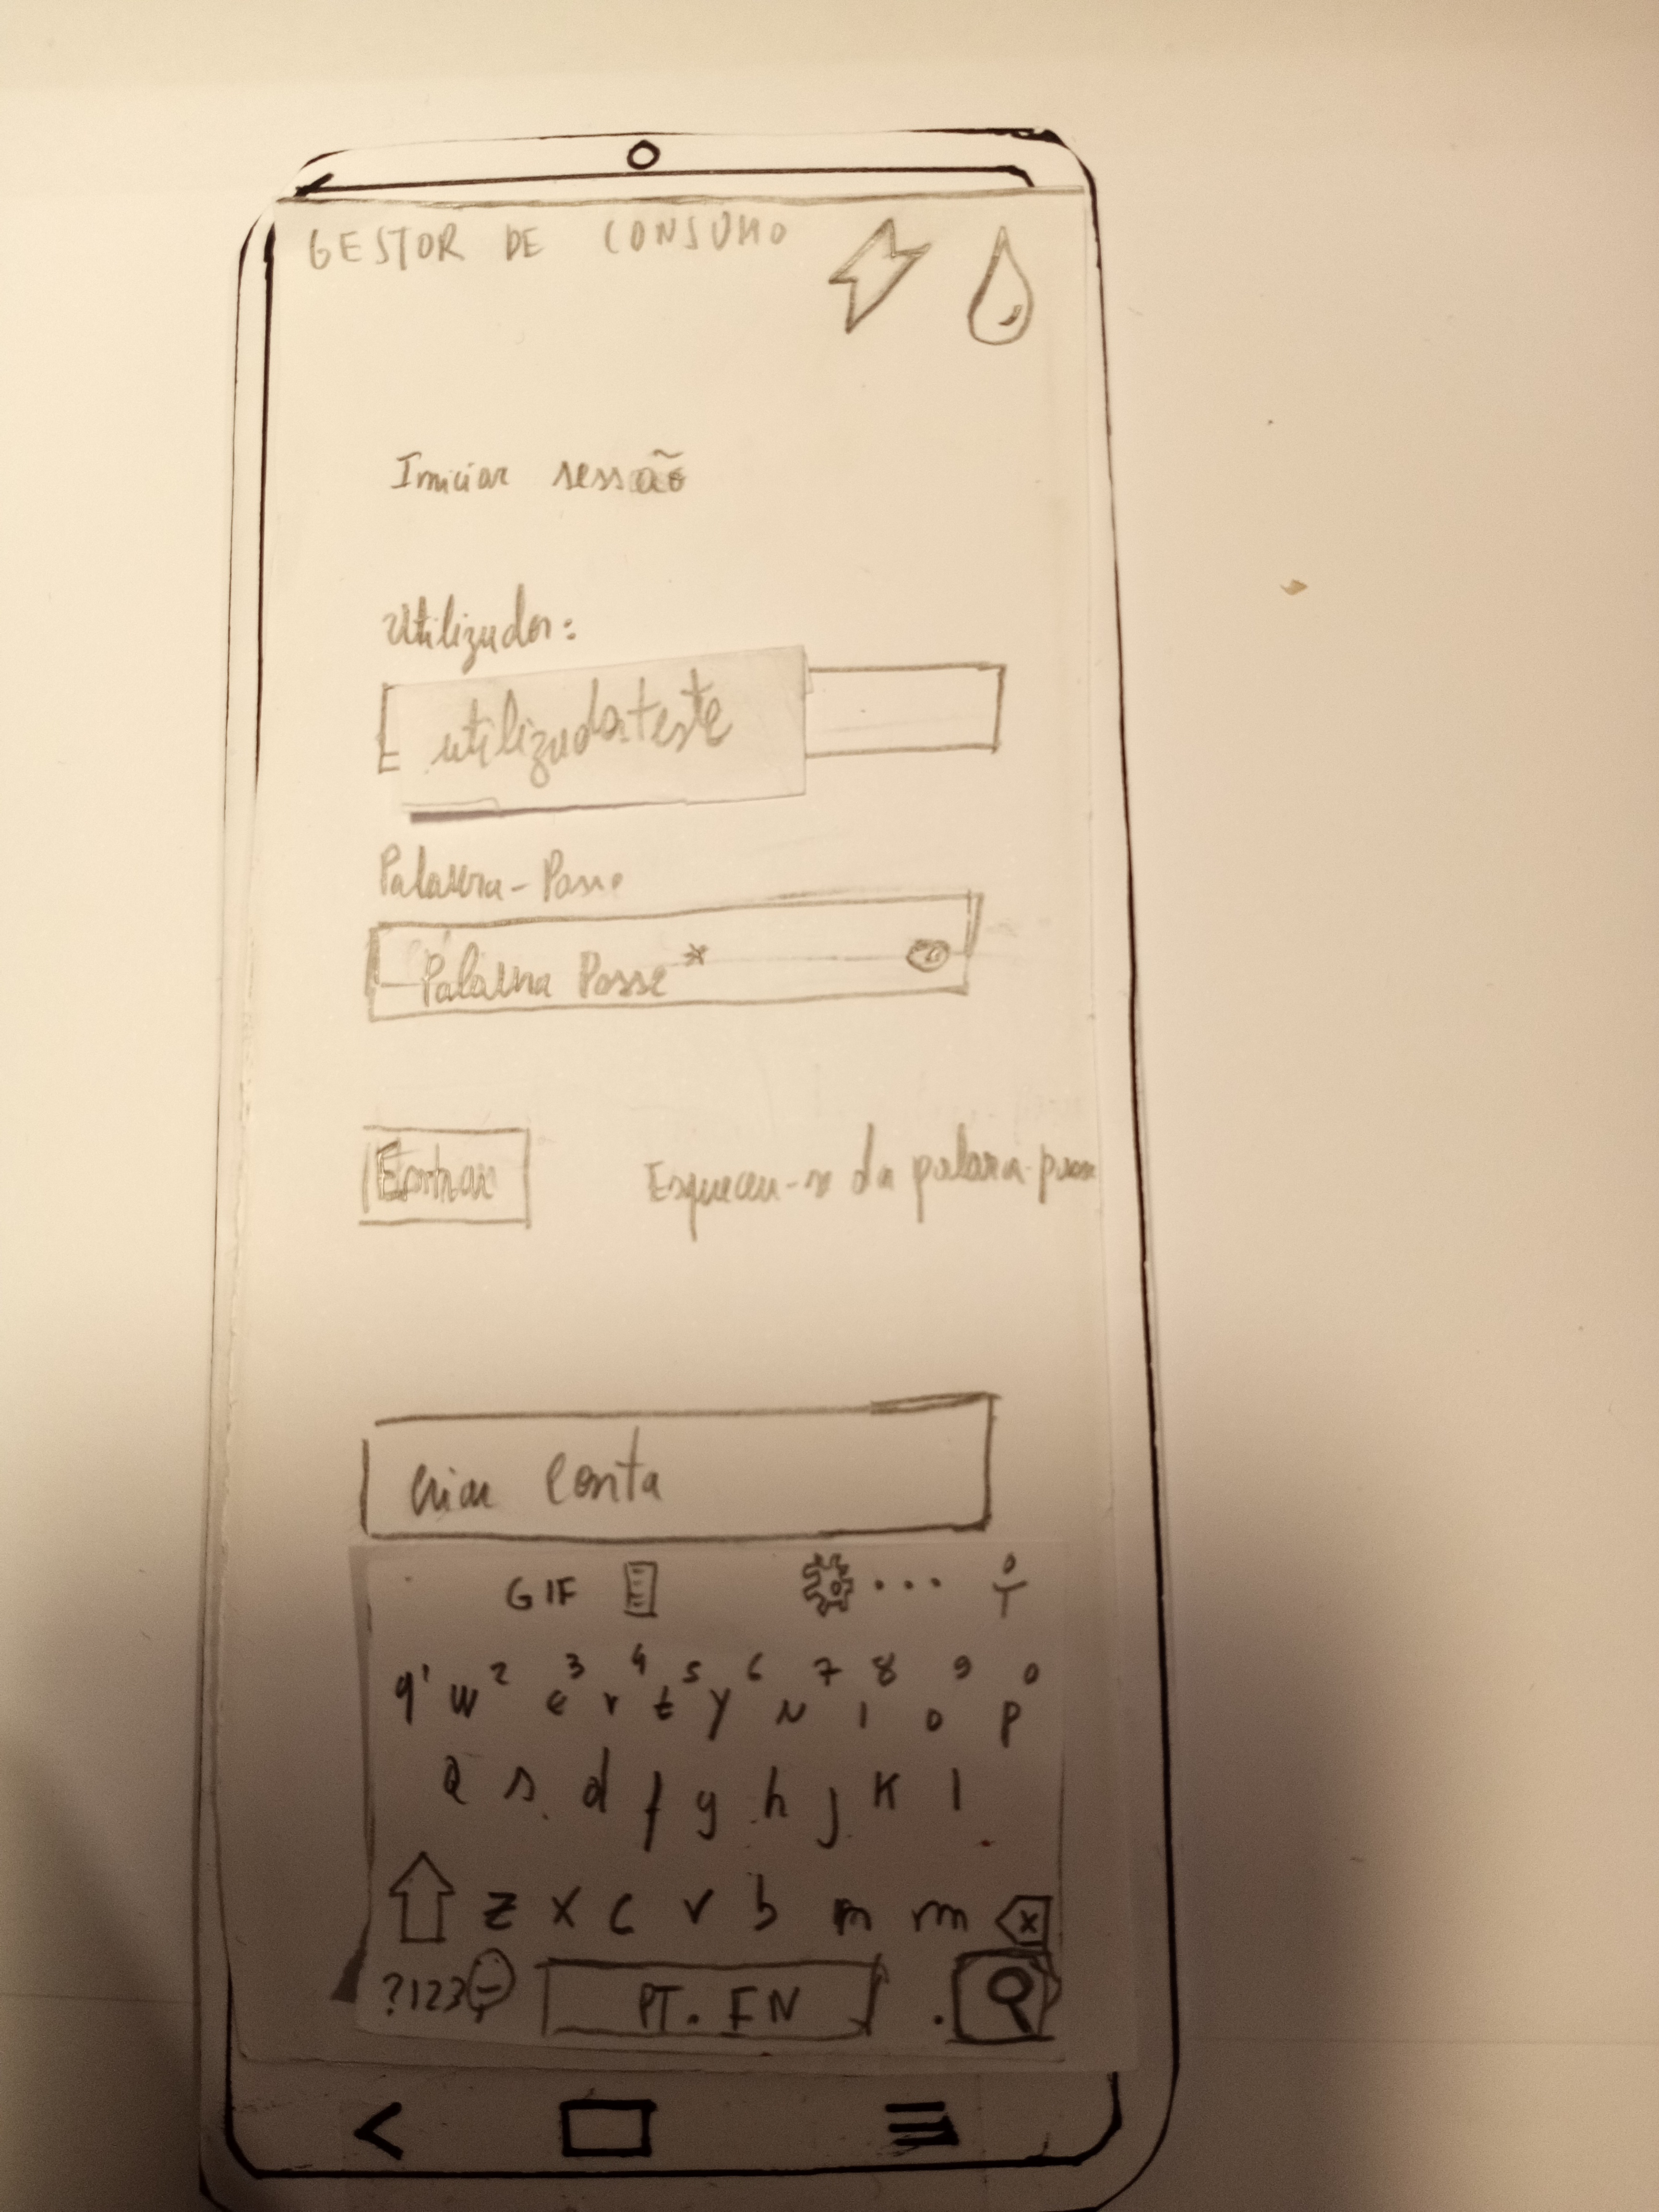 GESTOR DE CONSUMO
Iniciar sessão
Utilizador:
utilizadorteste
Palavra-Passe
Palavra Passe*
Entrar
Esqueceu-se da palavra-passe
Criar Conta
GIF ...
q1 w2 e3 r4 t5 y6 u7 i8 o9 p0
a s d f g h j k l
z x c v b n m x
?123 PT. EN .